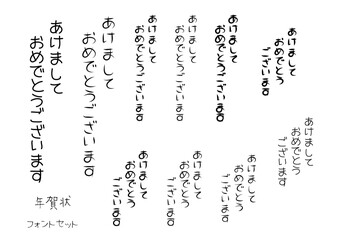 あけまして
おめでとうございます
あけまして
おめでとうございます
あけまして
おめでとうございます
あけまして
おめでとうございます
あけまして
おめでとうございます
あけまして
おめでとう
ございます
あけまして
おめでとう
ございます
あけまして
おめでとう
ございます
あけまして
おめでとう
ございます
あけまして
おめでとう
ございます
年賀状
フォントセット